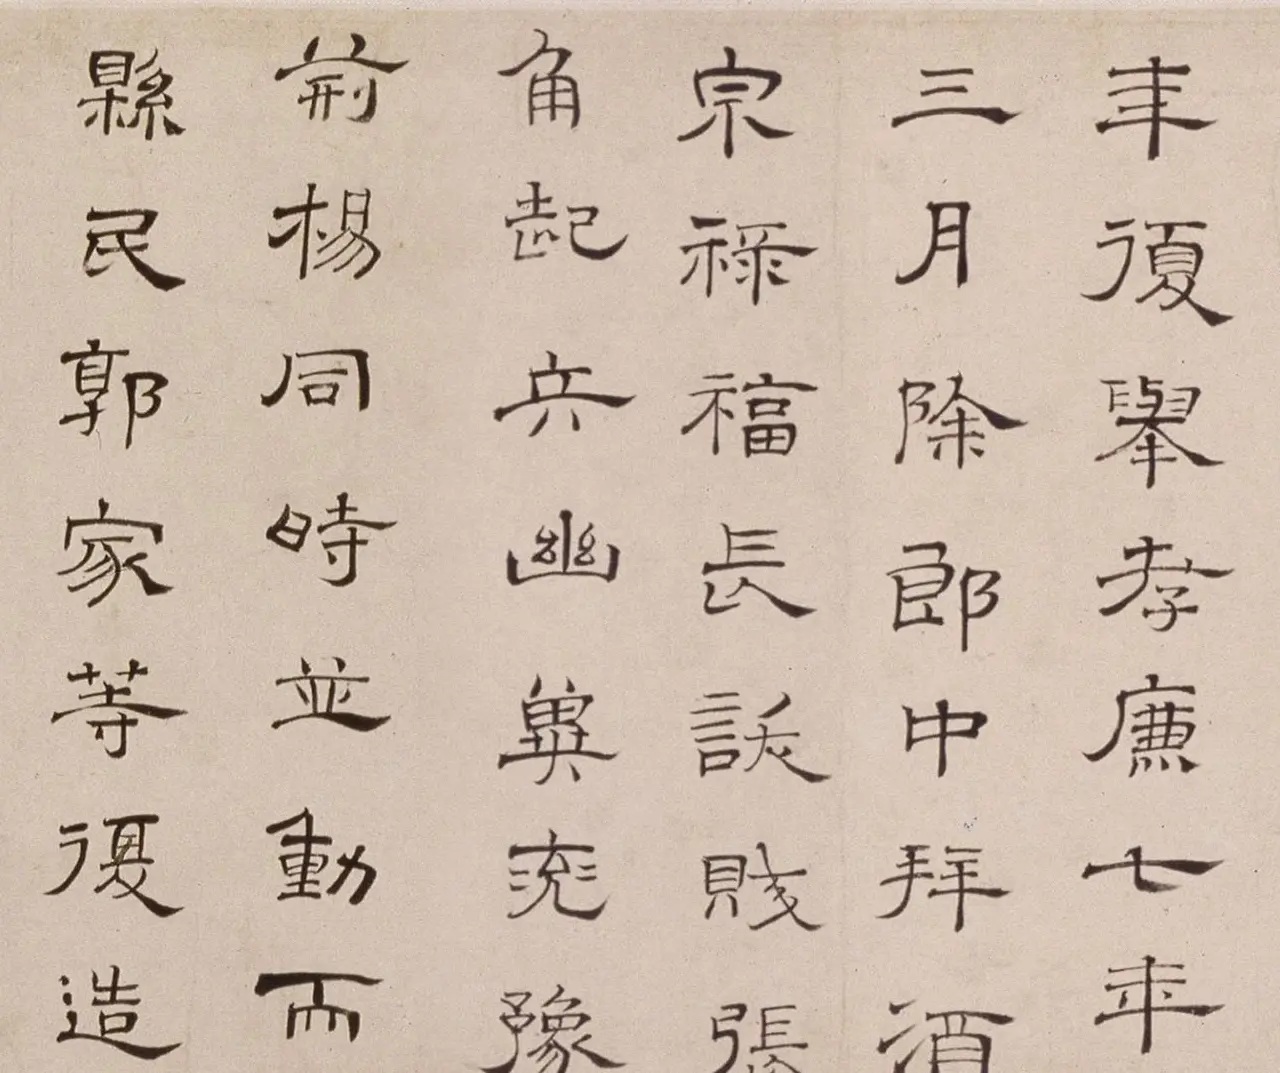 年復舉孝廉七年
三月除郎中拜酒
宗祿福長訞賊張
角起兵幽冀兖豫
荊楊同時並動而
縣民郭家等復造